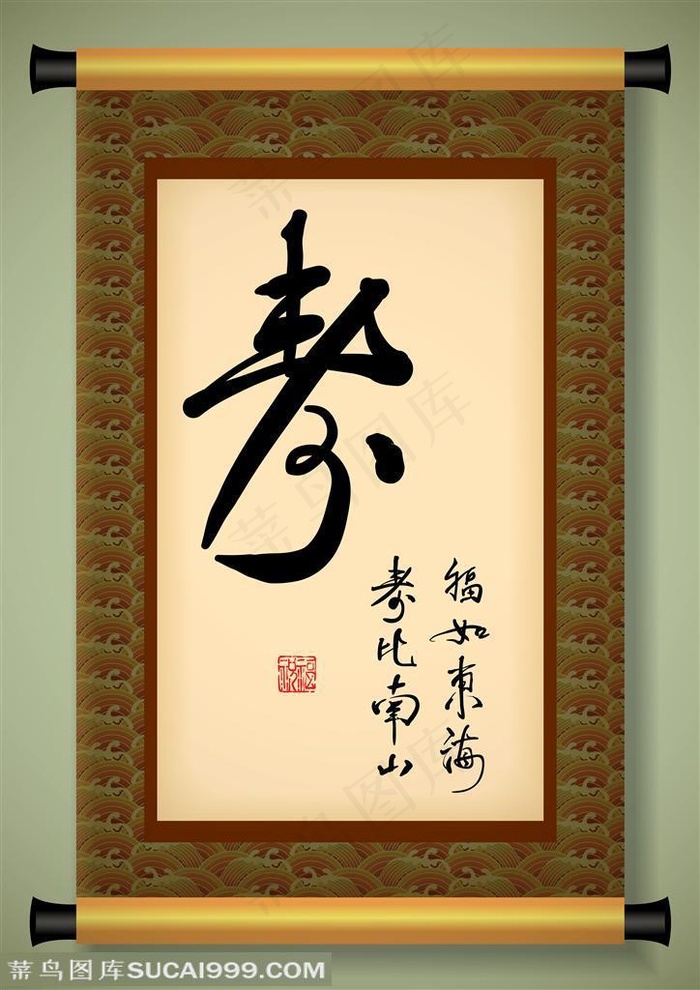 寿
福如東海
寿比南山
祝福
菜鸟图库
菜鸟图库SUCAI999.COM